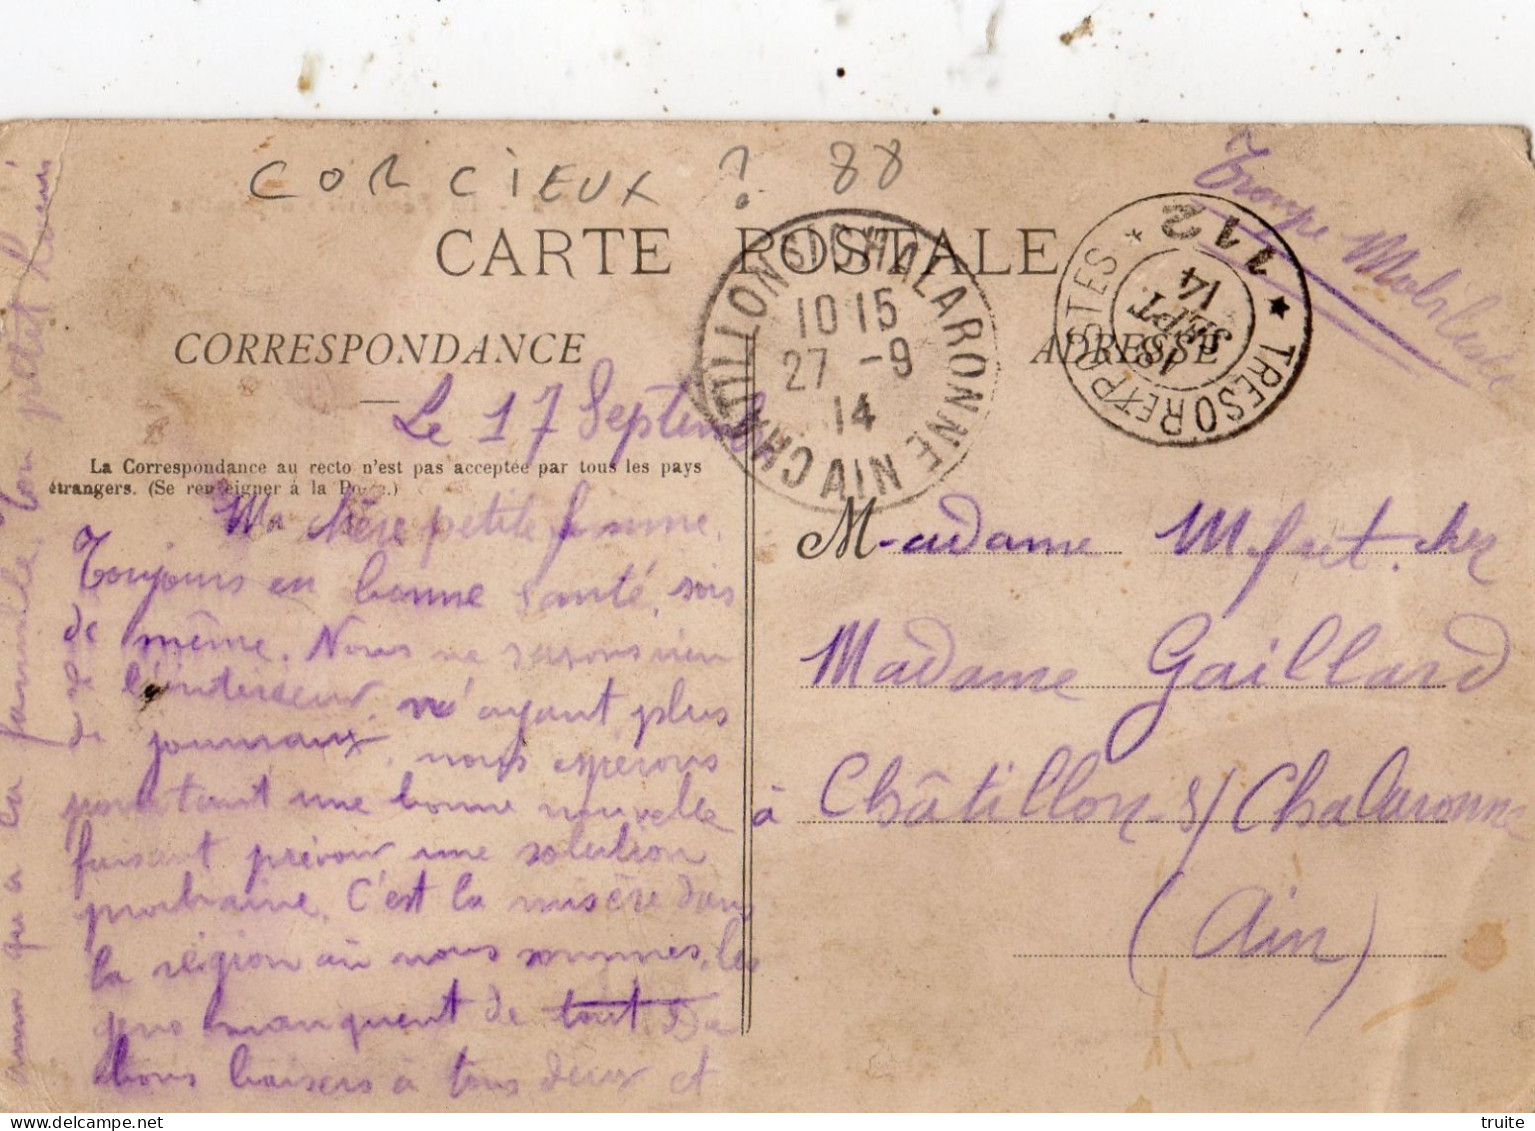 CORCIEUX ? 88
Troupe Mobilisée
CARTE POSTALE
CORRESPONDANCE
ADRESSE
CHATILLON-S-CHALARONNE AIN
10 15
27 -9
14
TRESOR ET POSTES
★ 112 ★
18
SEPT.
14
Le 17 Septembre
La Correspondance au recto n'est pas acceptée par tous les pays
étrangers. (Se renseigner à la Poste.)
Ma chère petite femme.
Toujours en bonne santé, sois
de même. Nous ne savons rien
de l'intérieur, n'ayant plus
de journaux, nous espérons
pourtant une bonne nouvelle
faisant prévoir une solution
prochaine. C'est la misère dans
la région où nous sommes, les
gens manquent de tout. De
bons baisers à tous deux et
ainsi qu'à la famille. Ton petit Louis
M-adame chez
Madame Gaillard
à Châtillon-s/Chalaronne
(Ain)
delcampe.net
truite